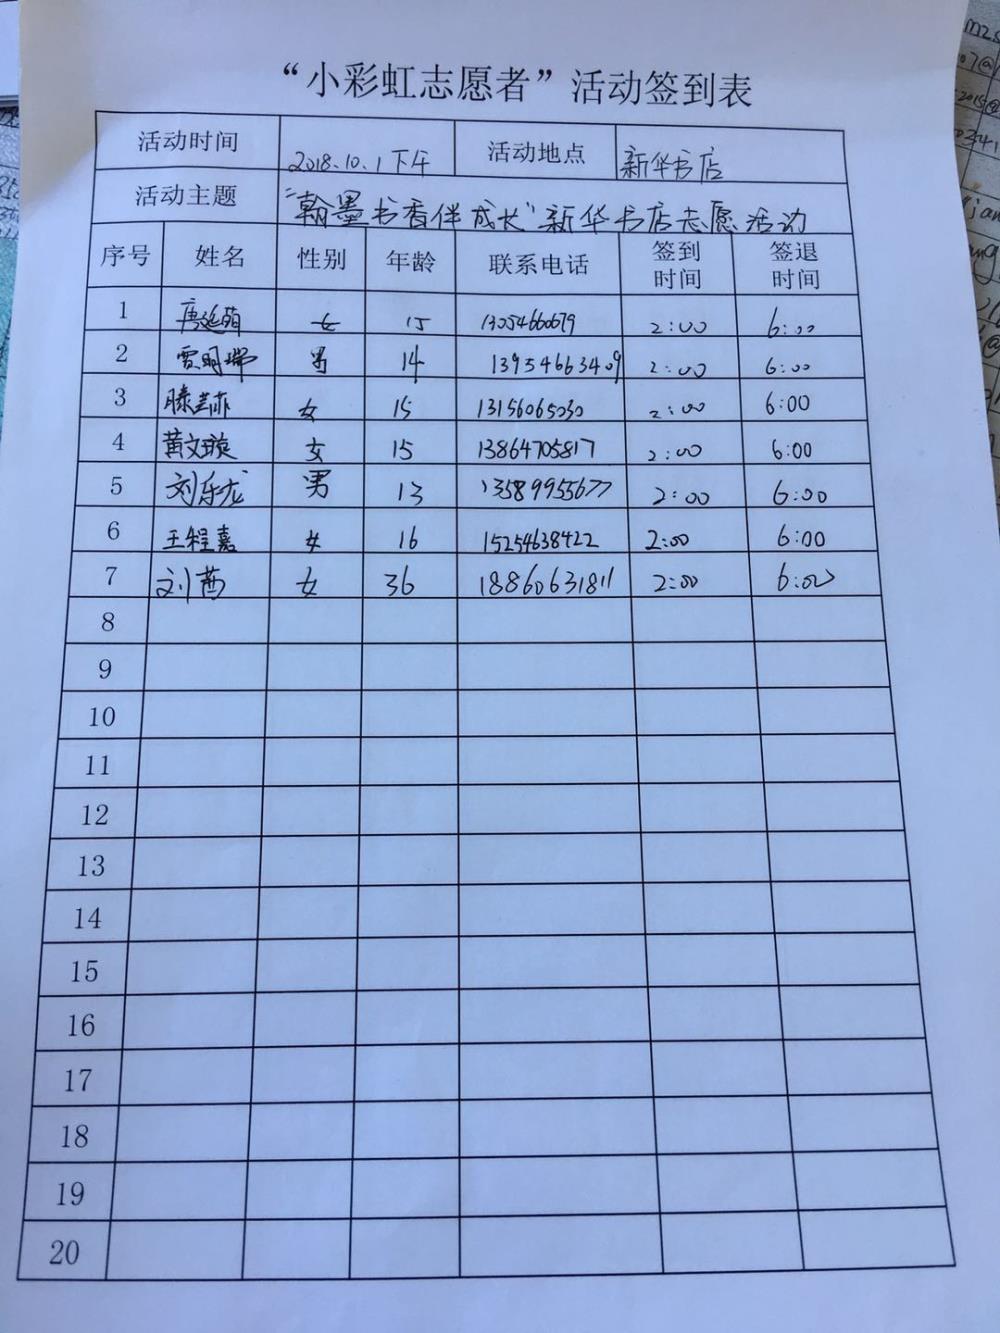 “小彩虹志愿者”活动签到表
活动时间 2018.10.1下午 活动地点 新华书店
活动主题 “翰墨书香伴成长”新华书店志愿活动
序号 姓名 性别 年龄 联系电话 签到时间 签退时间
1 女 15 13054660679 2:00 6:00
2 贾明瑞 男 14 13954663409 2:00 6:00
3 女 15 13156065030 2:00 6:00
4 黄文璇 女 15 13864705817 2:00 6:00
5 刘乐龙 男 13 13589955677 2:00 6:00
6 王程嘉 女 16 15254638422 2:00 6:00
7 刘茜 女 36 18860631811 2:00 6:00
8
9
10
11
12
13
14
15
16
17
18
19
20